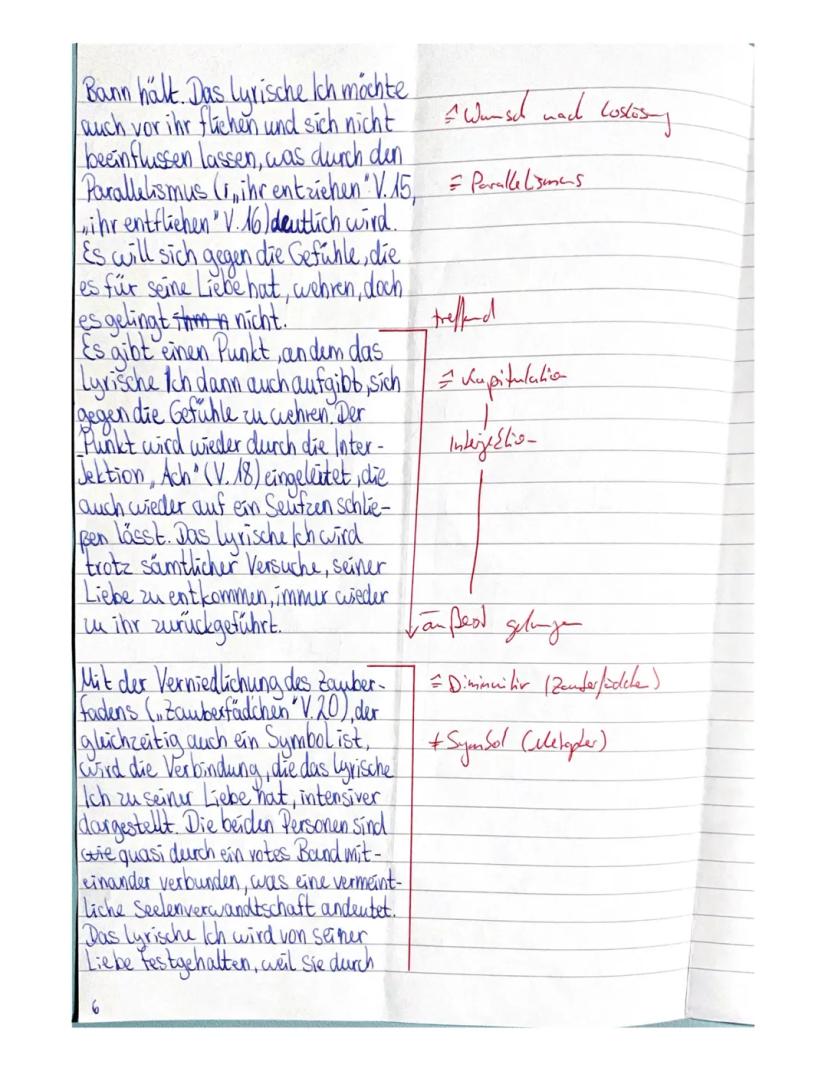 Bann hält. Das lyrische Ich möchte
auch vor ihr fliehen und sich nicht
beeinflussen lassen, was durch den
Parallelismus („ihr entziehen" V.15,
„ihr entfliehen" V.16) deutlich wird.
Es will sich gegen die Gefühle, die
es für seine Liebe hat, wehren, doch
es gelingt nicht.
Es gibt einen Punkt, an dem das
Lyrische Ich dann auch aufgibt, sich
gegen die Gefühle zu wehren. Der
Punkt wird wieder durch die Inter-
jektion „Ach" (V.18) eingeleitet, die
auch wieder auf ein Seufzen schlie-
ßen lässt. Das lyrische Ich wird
trotz sämtlicher Versuche, seiner
Liebe zu entkommen, immer wieder
zu ihr zurückgeführt.
Mit der Verniedlichung des Zauber-
fadens („Zauberfädchen" V.20), der
gleichzeitig auch ein Symbol ist,
wird die Verbindung, die das lyrische
Ich zu seiner Liebe hat, intensiver
dargestellt. Die beiden Personen sind
quasi durch ein rotes Band mit-
einander verbunden, was eine vermeint-
liche Seelenverwandtschaft andeutet.
Das lyrische Ich wird von seiner
Liebe festgehalten, weil sie durch
6
≙ Wunsch nach Loslösung
≙ Parallelismus
treffend
≙ Kapitulation
Interjektion
äußerst gelungen
≙ Diminuitiv (Zauberfädchen)
+ Symbol (Metapher)